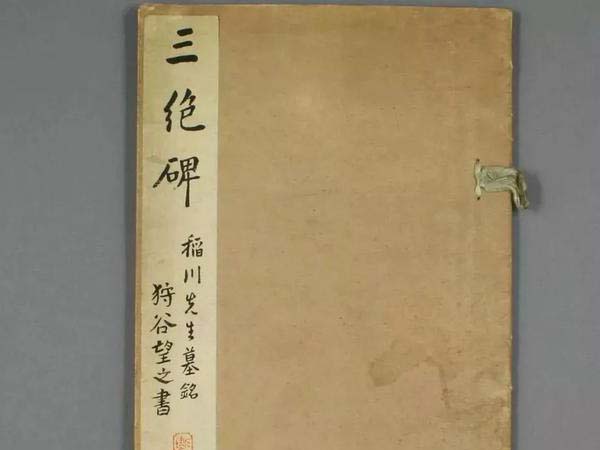 三絶碑
稲川先生墓銘
狩谷望之書